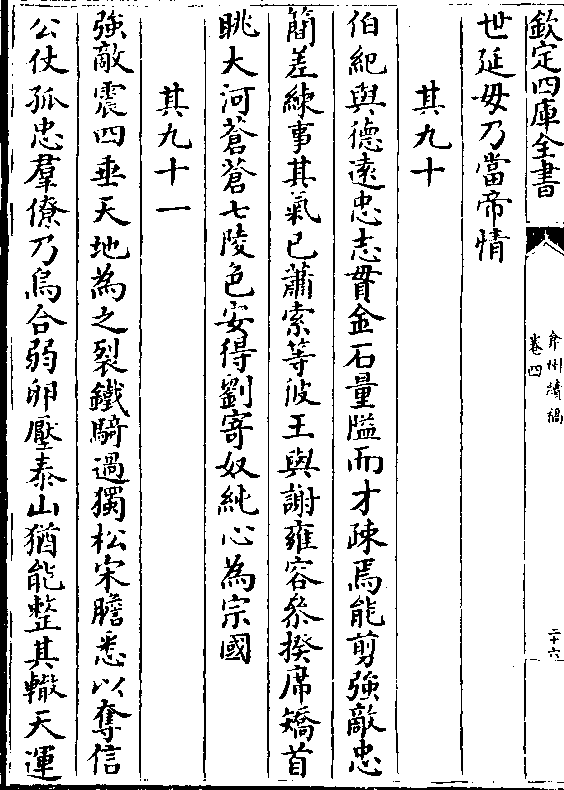 欽定四庫全書
弇州續稿
卷四
二十六
世延毋乃當帝情
其九十
伯紀與德遠忠志貫金石量隘而才疎焉能剪強敵忠
簡差練事其氣已蕭索等彼王與謝雍容叅揆席矯首
眺大河蒼蒼七陵色安得劉寄奴純心為宗國
其九十一
強敵震四垂天地為之裂鐵騎過獨松宋膽悉以奪信
公仗孤忠羣僚乃烏合弱卵壓泰山猶能整其轍天運